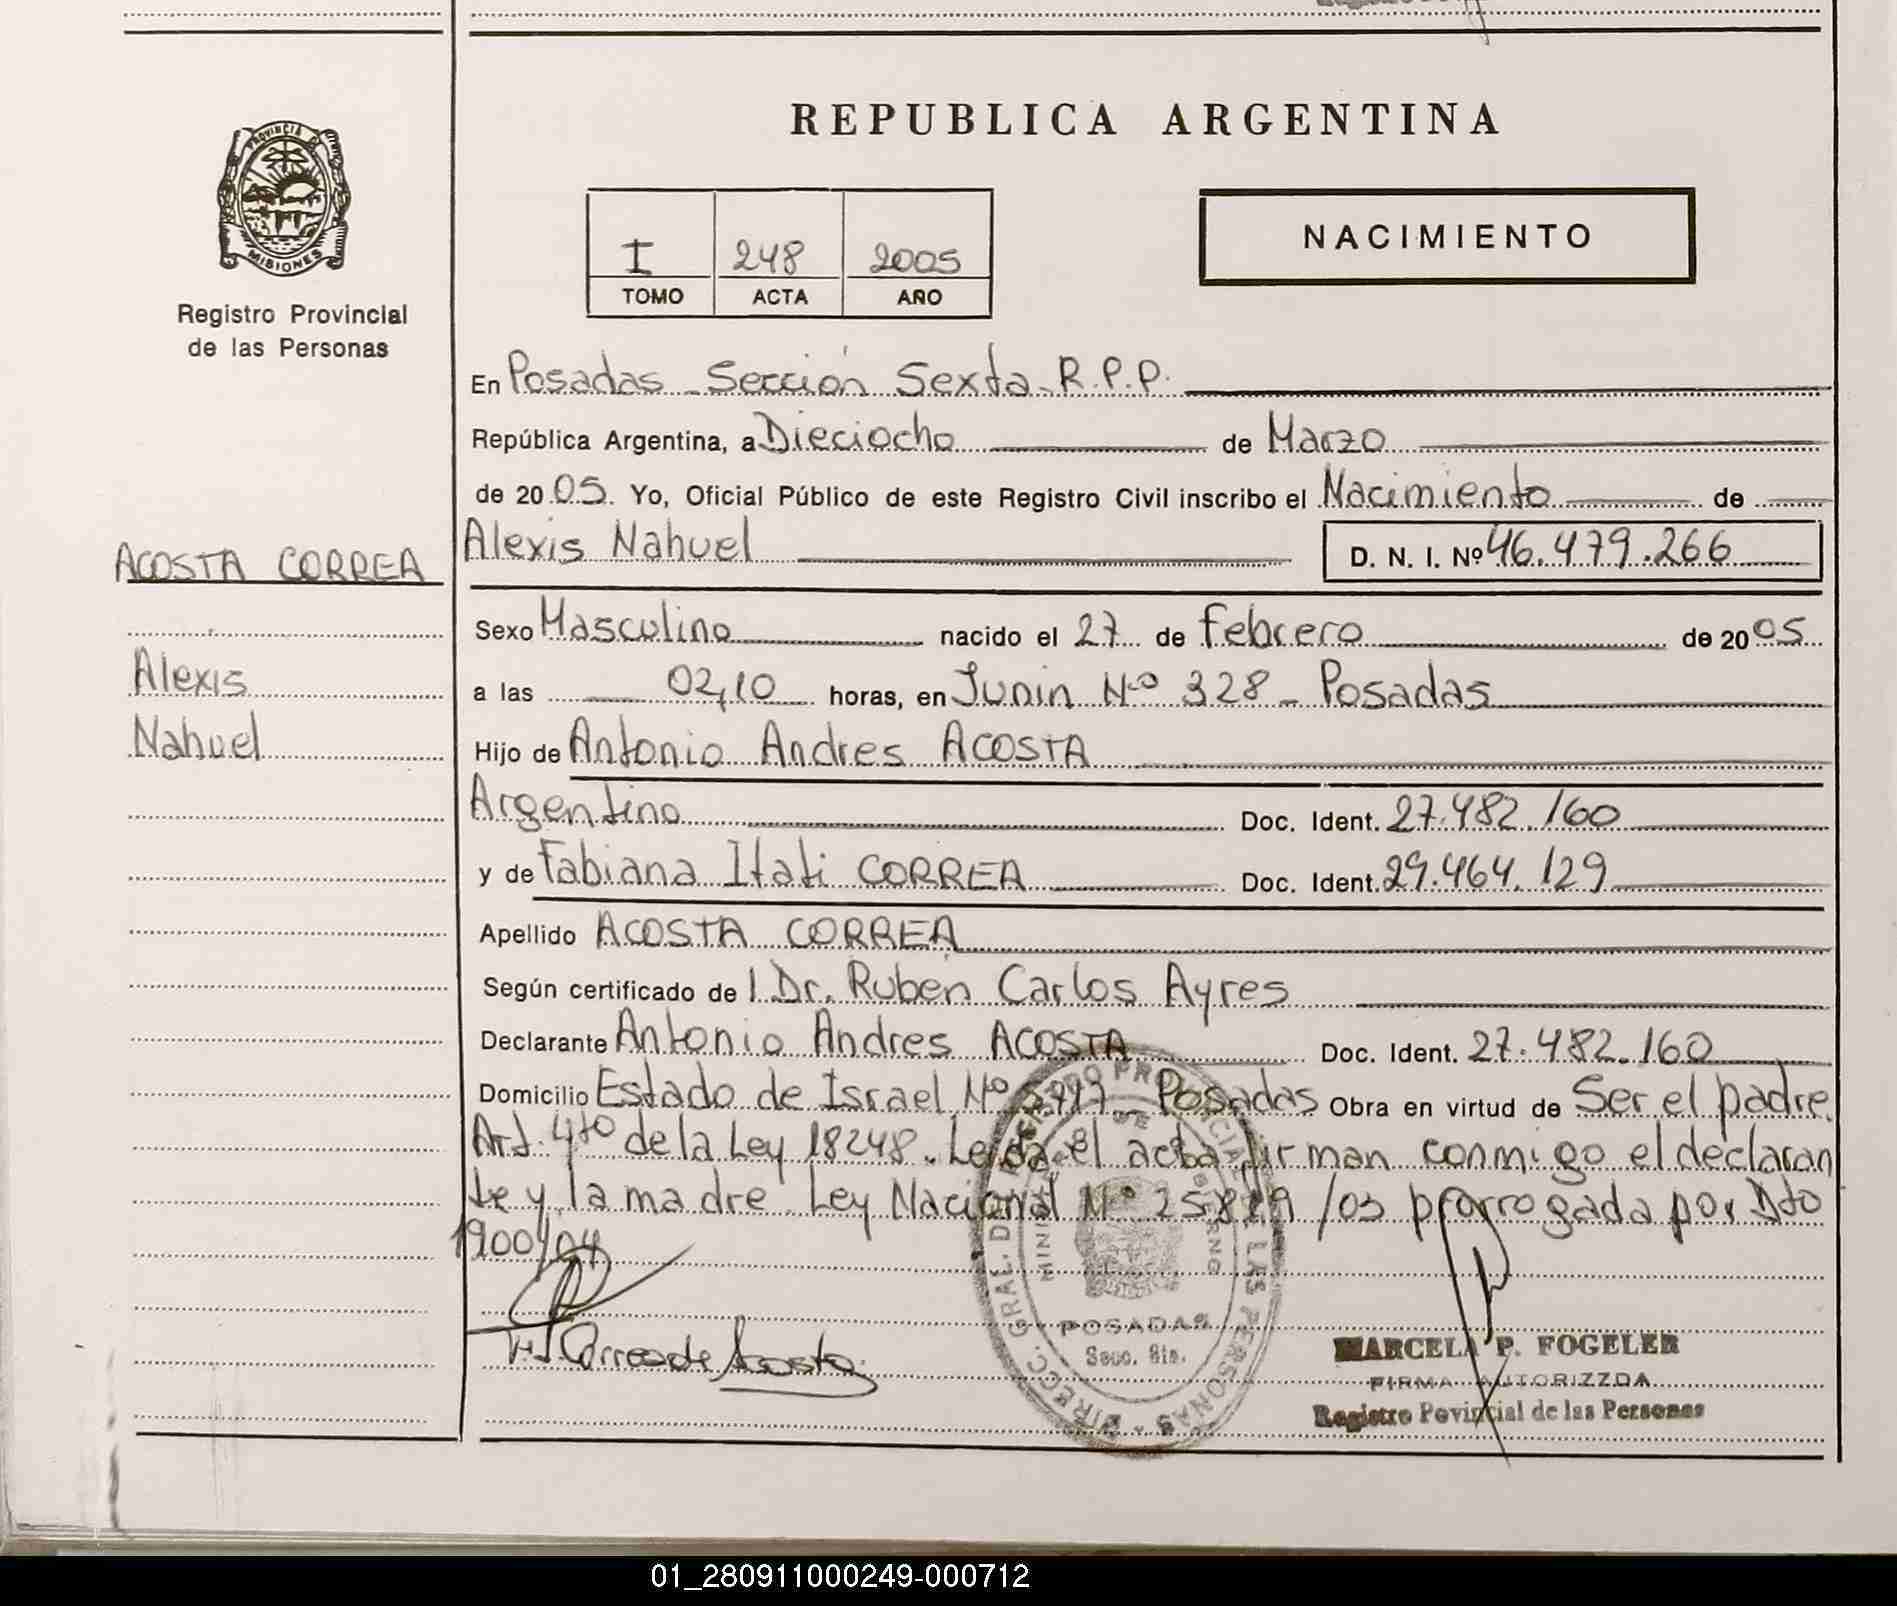 REPUBLICA ARGENTINA
PROVINCIA D
MISIONES
Registro Provincial
de las Personas
I 248 2005
TOMO ACTA AÑO
NACIMIENTO
En Posadas - Sección Sexta - R.P.P.
República Argentina, a Dieciocho de Marzo
de 2005. Yo, Oficial Público de este Registro Civil inscribo el Nacimiento de
ACOSTA CORREA
Alexis Nahuel D. N. I. Nº 46.479.266
Sexo Masculino nacido el 27 de Febrero de 2005
Alexis
a las 02,10 horas, en Junin Nº 328 - Posadas
Nahuel
Hijo de Antonio Andres ACOSTA
Argentino Doc. Ident. 27.482.160
y de Fabiana Itati CORREA Doc. Ident. 29.464.129
Apellido ACOSTA CORREA
Según certificado de l Dr. Ruben Carlos Ayres
Declarante Antonio Andres ACOSTA Doc. Ident. 27.482.160
Domicilio Estado de Israel Nº Posadas Obra en virtud de Ser el padre.
Art. 4to de la Ley 18248. Leida el acta firman conmigo el declaran
te y la madre. Ley Nacional Nº /03 prorrogada por Dto
1900/04
Correa de Acosta
DIRECC. GRAL. DEL REGISTRO PROVINCIAL DE LAS PERSONAS
POSADAS
Secc. 6ta.
MARCELA P. FOGELER
FIRMA AUTORIZZDA
Registro Povincial de las Personas
01_280911000249-000712